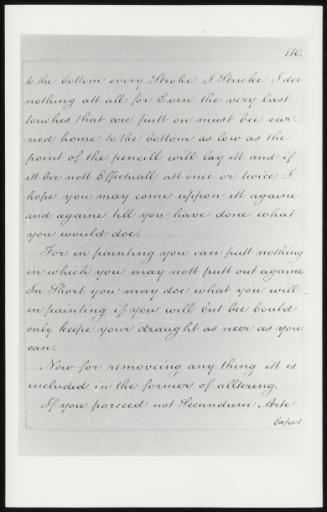 110.
to the bottom every Stroke I Strike I doe
nothing att all for Even the very last
touches that are putt on must bee car
ried home to the bottom as low as the
point of the pencill will lay itt and if
itt bee nott Effectuall att once or twice I
hope you may come uppon itt againe
and againe till you have done what
you would doe.
For in painting you can putt nothing
in which you may nott putt out againe
In Short you may doe what you will
in painting if you will but bee bould
only keepe your draught as neer as you
can.
Now for removeing any thing itt is
included in the former of alltering.
If you porceed not Secundum Arte
Expect